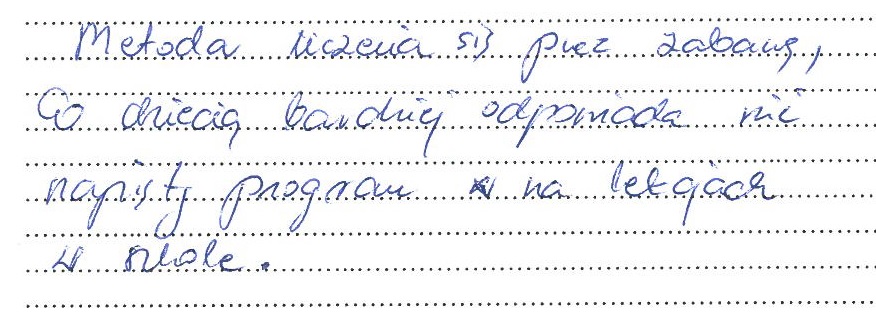 Metoda uczenia się przez zabawę,
Co dziecią bardziej odpowiada niż
napięty program na lekcjach
w szkole.